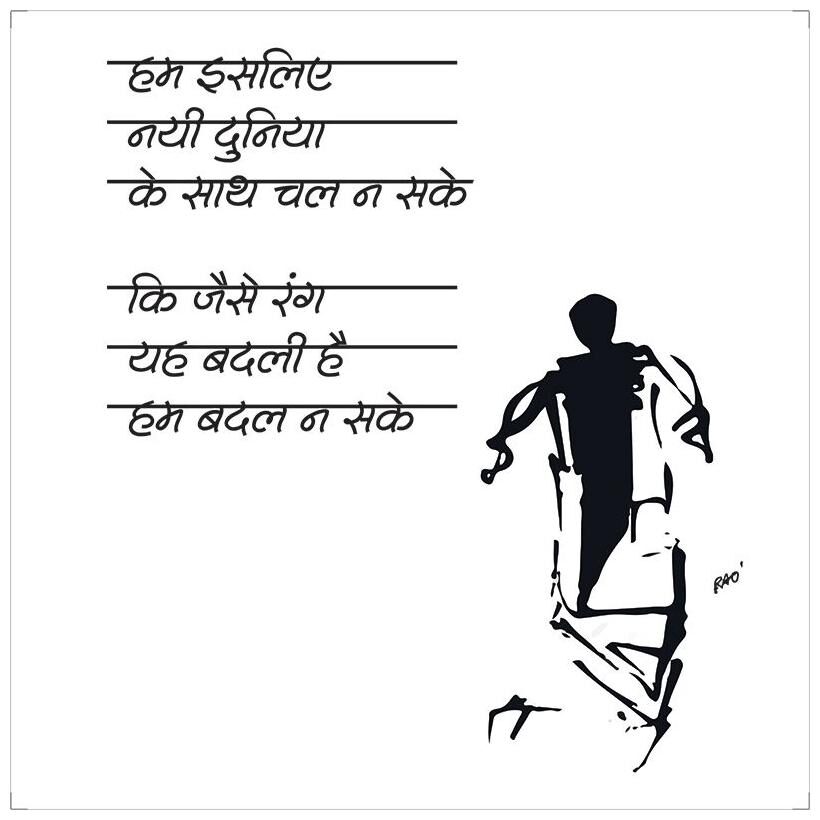 हम इसलिए
नयी दुनिया
के साथ चल न सके
कि जैसे रंग
यह बदली है
हम बदल न सके
RAO'